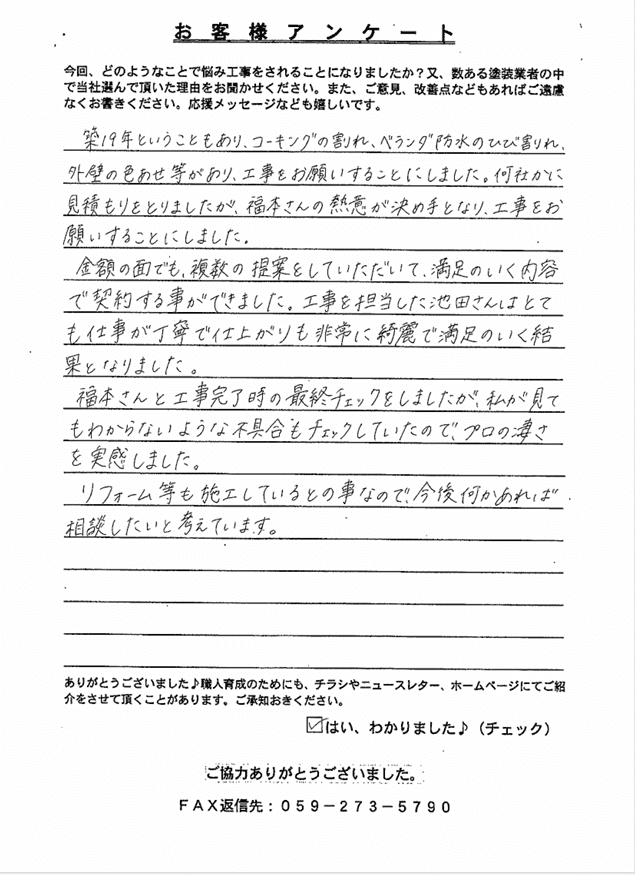 お客様アンケート
今回、どのようなことで悩み工事をされることになりましたか？又、数ある塗装業者の中
で当社選んで頂いた理由をお聞かせください。また、ご意見、改善点などもあればご遠慮
なくお書きください。応援メッセージなども嬉しいです。
築19年ということもあり、コーキングの割れ、ベランダ防水のひび割れ、
外壁の色あせ等があり、工事をお願いすることにしました。何社かに
見積もりをとりましたが、福本さんの熱意が決め手となり、工事をお
願いすることにしました。
金額の面でも、複数の提案をしていただいて、満足のいく内容
で契約する事ができました。工事を担当した池田さんはとて
も仕事が丁寧で仕上がりも非常に綺麗で満足のいく結
果となりました。
福本さんと工事完了時の最終チェックをしましたが、私が見て
もわからないような不具合もチェックしていたので、プロの凄さ
を実感しました。
リフォーム等も施工しているとの事なので、今後何かあれば
相談したいと考えています。
ありがとうございました♪職人育成のためにも、チラシやニュースレター、ホームページにてご紹
介をさせて頂くことがあります。ご承知おきください。
☑はい、わかりました♪（チェック）
ご協力ありがとうございました。
ＦＡＸ返信先：０５９－２７３－５７９０